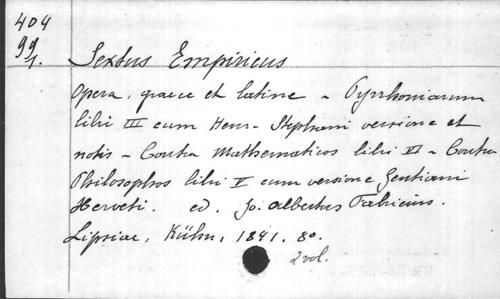 404
99
1.
Sextus Empiricus
Opera, graece et latine – Pyrrhoniarum
libri III cum Henr. Stephani versione et
notis – Contra Mathematicos libri VI – Contra
Philosophos libri V cum versione Gentiani
Herveti. ed. Jo. Albertus Fabricius.
Lipsiae, Kühn, 1841. 8o.
2 vol.